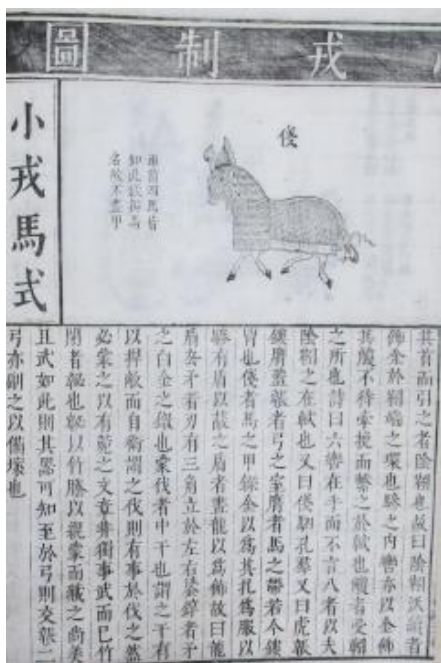 戎制圖
俴
兩馬皆
如此狀與馬
名故不畫甲
小戎馬式
其首而引之者陰靷也故曰陰靷沃續者
飾金於靷端之環也驂之內轡亦以金飾
其觼不待牽挽而繫之於軾也觼者受軜
之所也詩曰六轡在手而不言八者以夫
陰靷之在軾也又曰俴駟孔羣又曰虎韔
鏤膺蓋韔者弓之室膺者馬之帶若今鏤
胷也俴者馬之甲鍱金以爲其札爲服以
驂有盾以蔽之盾者畫龍以爲飾故曰龍
盾厹矛者刃有三角立於左右鋈錞者矛
之白金之鐓也蒙伐者中干也謂之干有
以捍敵而自衛謂之伐則有事於伐之然
必蒙之以有苑之文章非獨事武而已竹
閉者柲也柲以竹縢以親蒙而藏之尚美
且武如此則其器可知至於弓則交韔二
弓亦副之以備壞也